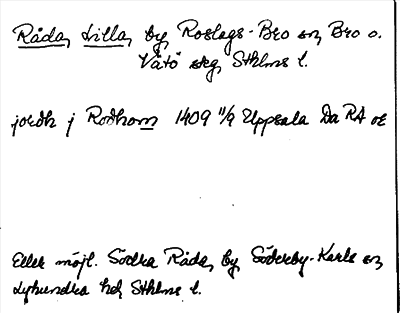 Råda, Lilla, by, Roslags-Bro sn, Bro o.
Vätö skg, Sthlms l.
jordh j Rodhom 1409 11/9 Uppsala Da RA or
Eller möjl. Södra Råda, by, Söderby-Karls sn,
Lyhundra hd, Sthlms l.